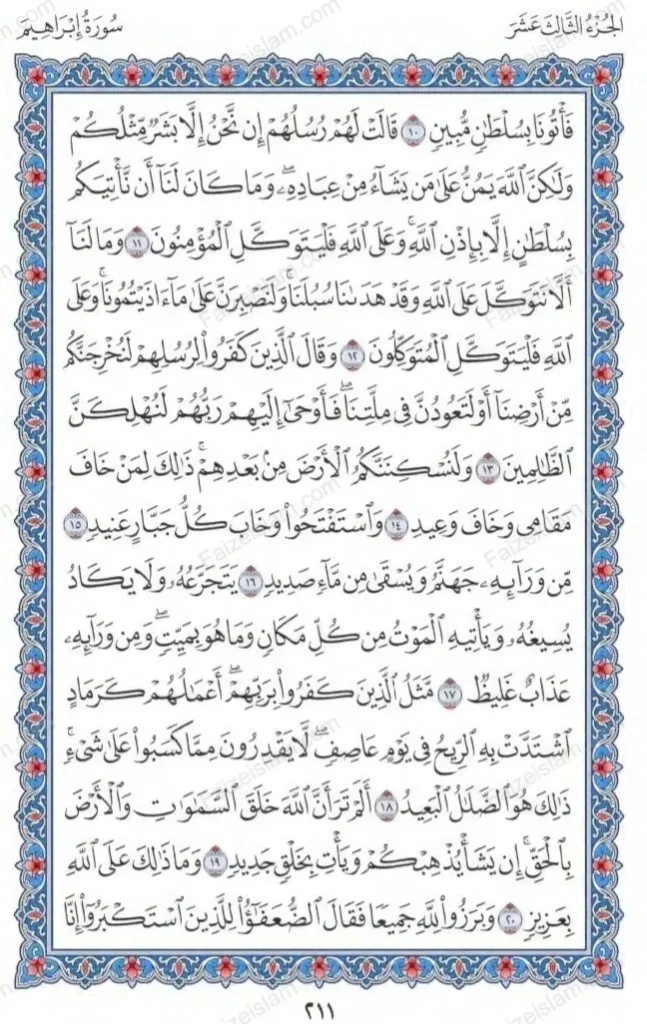 الجُزْءُ الثَّالِثَ عَشَرَ
سُورَةُ إِبْرَاهِيمَ
فَأْتُونَا بِسُلْطَانٍ مُّبِينٍ ١٠ قَالَتْ لَهُمْ رُسُلُهُمْ إِن نَّحْنُ إِلَّا بَشَرٌ مِّثْلُكُمْ
وَلَٰكِنَّ ٱللَّهَ يَمُنُّ عَلَىٰ مَن يَشَآءُ مِنْ عِبَادِهِۦۖ وَمَا كَانَ لَنَآ أَن نَّأْتِيَكُم
بِسُلْطَٰنٍ إِلَّا بِإِذْنِ ٱللَّهِۚ وَعَلَى ٱللَّهِ فَلْيَتَوَكَّلِ ٱلْمُؤْمِنُونَ ١١ وَمَا لَنَآ
أَلَّا نَتَوَكَّلَ عَلَى ٱللَّهِ وَقَدْ هَدَىٰنَا سُبُلَنَاۚ وَلَنَصْبِرَنَّ عَلَىٰ مَآ ءَاذَيْتُمُونَاۚ وَعَلَى
ٱللَّهِ فَلْيَتَوَكَّلِ ٱلْمُتَوَكِّلُونَ ١٢ وَقَالَ ٱلَّذِينَ كَفَرُوا۟ لِرُسُلِهِمْ لَنُخْرِجَنَّكُم
مِّنْ أَرْضِنَآ أَوْ لَتَعُودُنَّ فِى مِلَّتِنَاۖ فَأَوْحَىٰٓ إِلَيْهِمْ رَبُّهُمْ لَنُهْلِكَنَّ
ٱلظَّٰلِمِينَ ١٣ وَلَنُسْكِنَنَّكُمُ ٱلْأَرْضَ مِنۢ بَعْدِهِمْۚ ذَٰلِكَ لِمَنْ خَافَ
مَقَامِى وَخَافَ وَعِيدِ ١٤ وَٱسْتَفْتَحُوا۟ وَخَابَ كُلُّ جَبَّارٍ عَنِيدٍ ١٥
مِّن وَرَآئِهِۦ جَهَنَّمُ وَيُسْقَىٰ مِن مَّآءٍ صَدِيدٍ ١٦ يَتَجَرَّعُهُۥ وَلَا يَكَادُ
يُسِيغُهُۥ وَيَأْتِيهِ ٱلْمَوْتُ مِن كُلِّ مَكَانٍ وَمَا هُوَ بِمَيِّتٍۖ وَمِن وَرَآئِهِۦ
عَذَابٌ غَلِيظٌ ١٧ مَّثَلُ ٱلَّذِينَ كَفَرُوا۟ بِرَبِّهِمْۖ أَعْمَٰلُهُمْ كَرَمَادٍ
ٱشْتَدَّتْ بِهِ ٱلرِّيحُ فِى يَوْمٍ عَاصِفٍۖ لَّا يَقْدِرُونَ مِمَّا كَسَبُوا۟ عَلَىٰ شَىْءٍۚ
ذَٰلِكَ هُوَ ٱلضَّلَٰلُ ٱلْبَعِيدُ ١٨ أَلَمْ تَرَ أَنَّ ٱللَّهَ خَلَقَ ٱلسَّمَٰوَٰتِ وَٱلْأَرْضَ
بِٱلْحَقِّۚ إِن يَشَأْ يُذْهِبْكُمْ وَيَأْتِ بِخَلْقٍ جَدِيدٍ ١٩ وَمَا ذَٰلِكَ عَلَى ٱللَّهِ
بِعَزِيزٍ ٢٠ وَبَرَزُوا۟ لِلَّهِ جَمِيعًا فَقَالَ ٱلضُّعَفَٰٓؤُا۟ لِلَّذِينَ ٱسْتَكْبَرُوٓا۟ إِنَّا
٢١١
Faizeislam.com